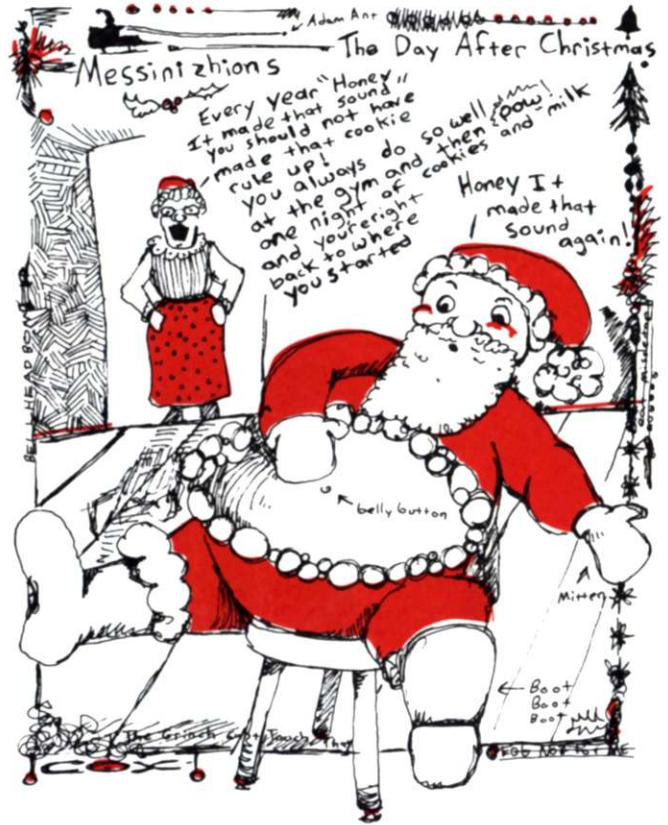 Adam Ant
The Day After Christmas
Messinizhions
Every year "Honey
It made that sound"
you should not have
made that cookie
rule up!
you always do so well
at the gym and then pow!
one night of cookies and milk
and you're right
back to where
you started
Honey It
made that
sound
again!
belly button
Mitten
Boot
Boot
Boot
The Grinch